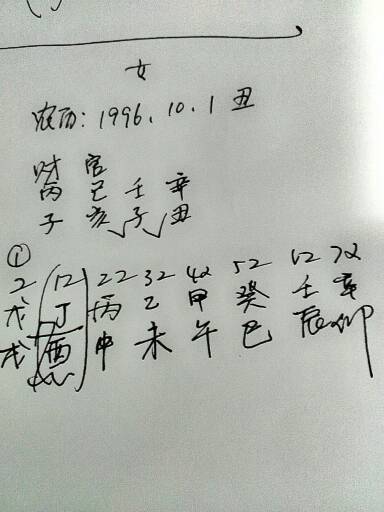 女
农历：1996、10、1 丑
财 官
丙 己 壬 辛
子 亥 子 丑
①
2 12 22 32 42 52 62 72
戊 丁 丙 乙 甲 癸 壬 辛
戌 酉 申 未 午 巳 辰 卯